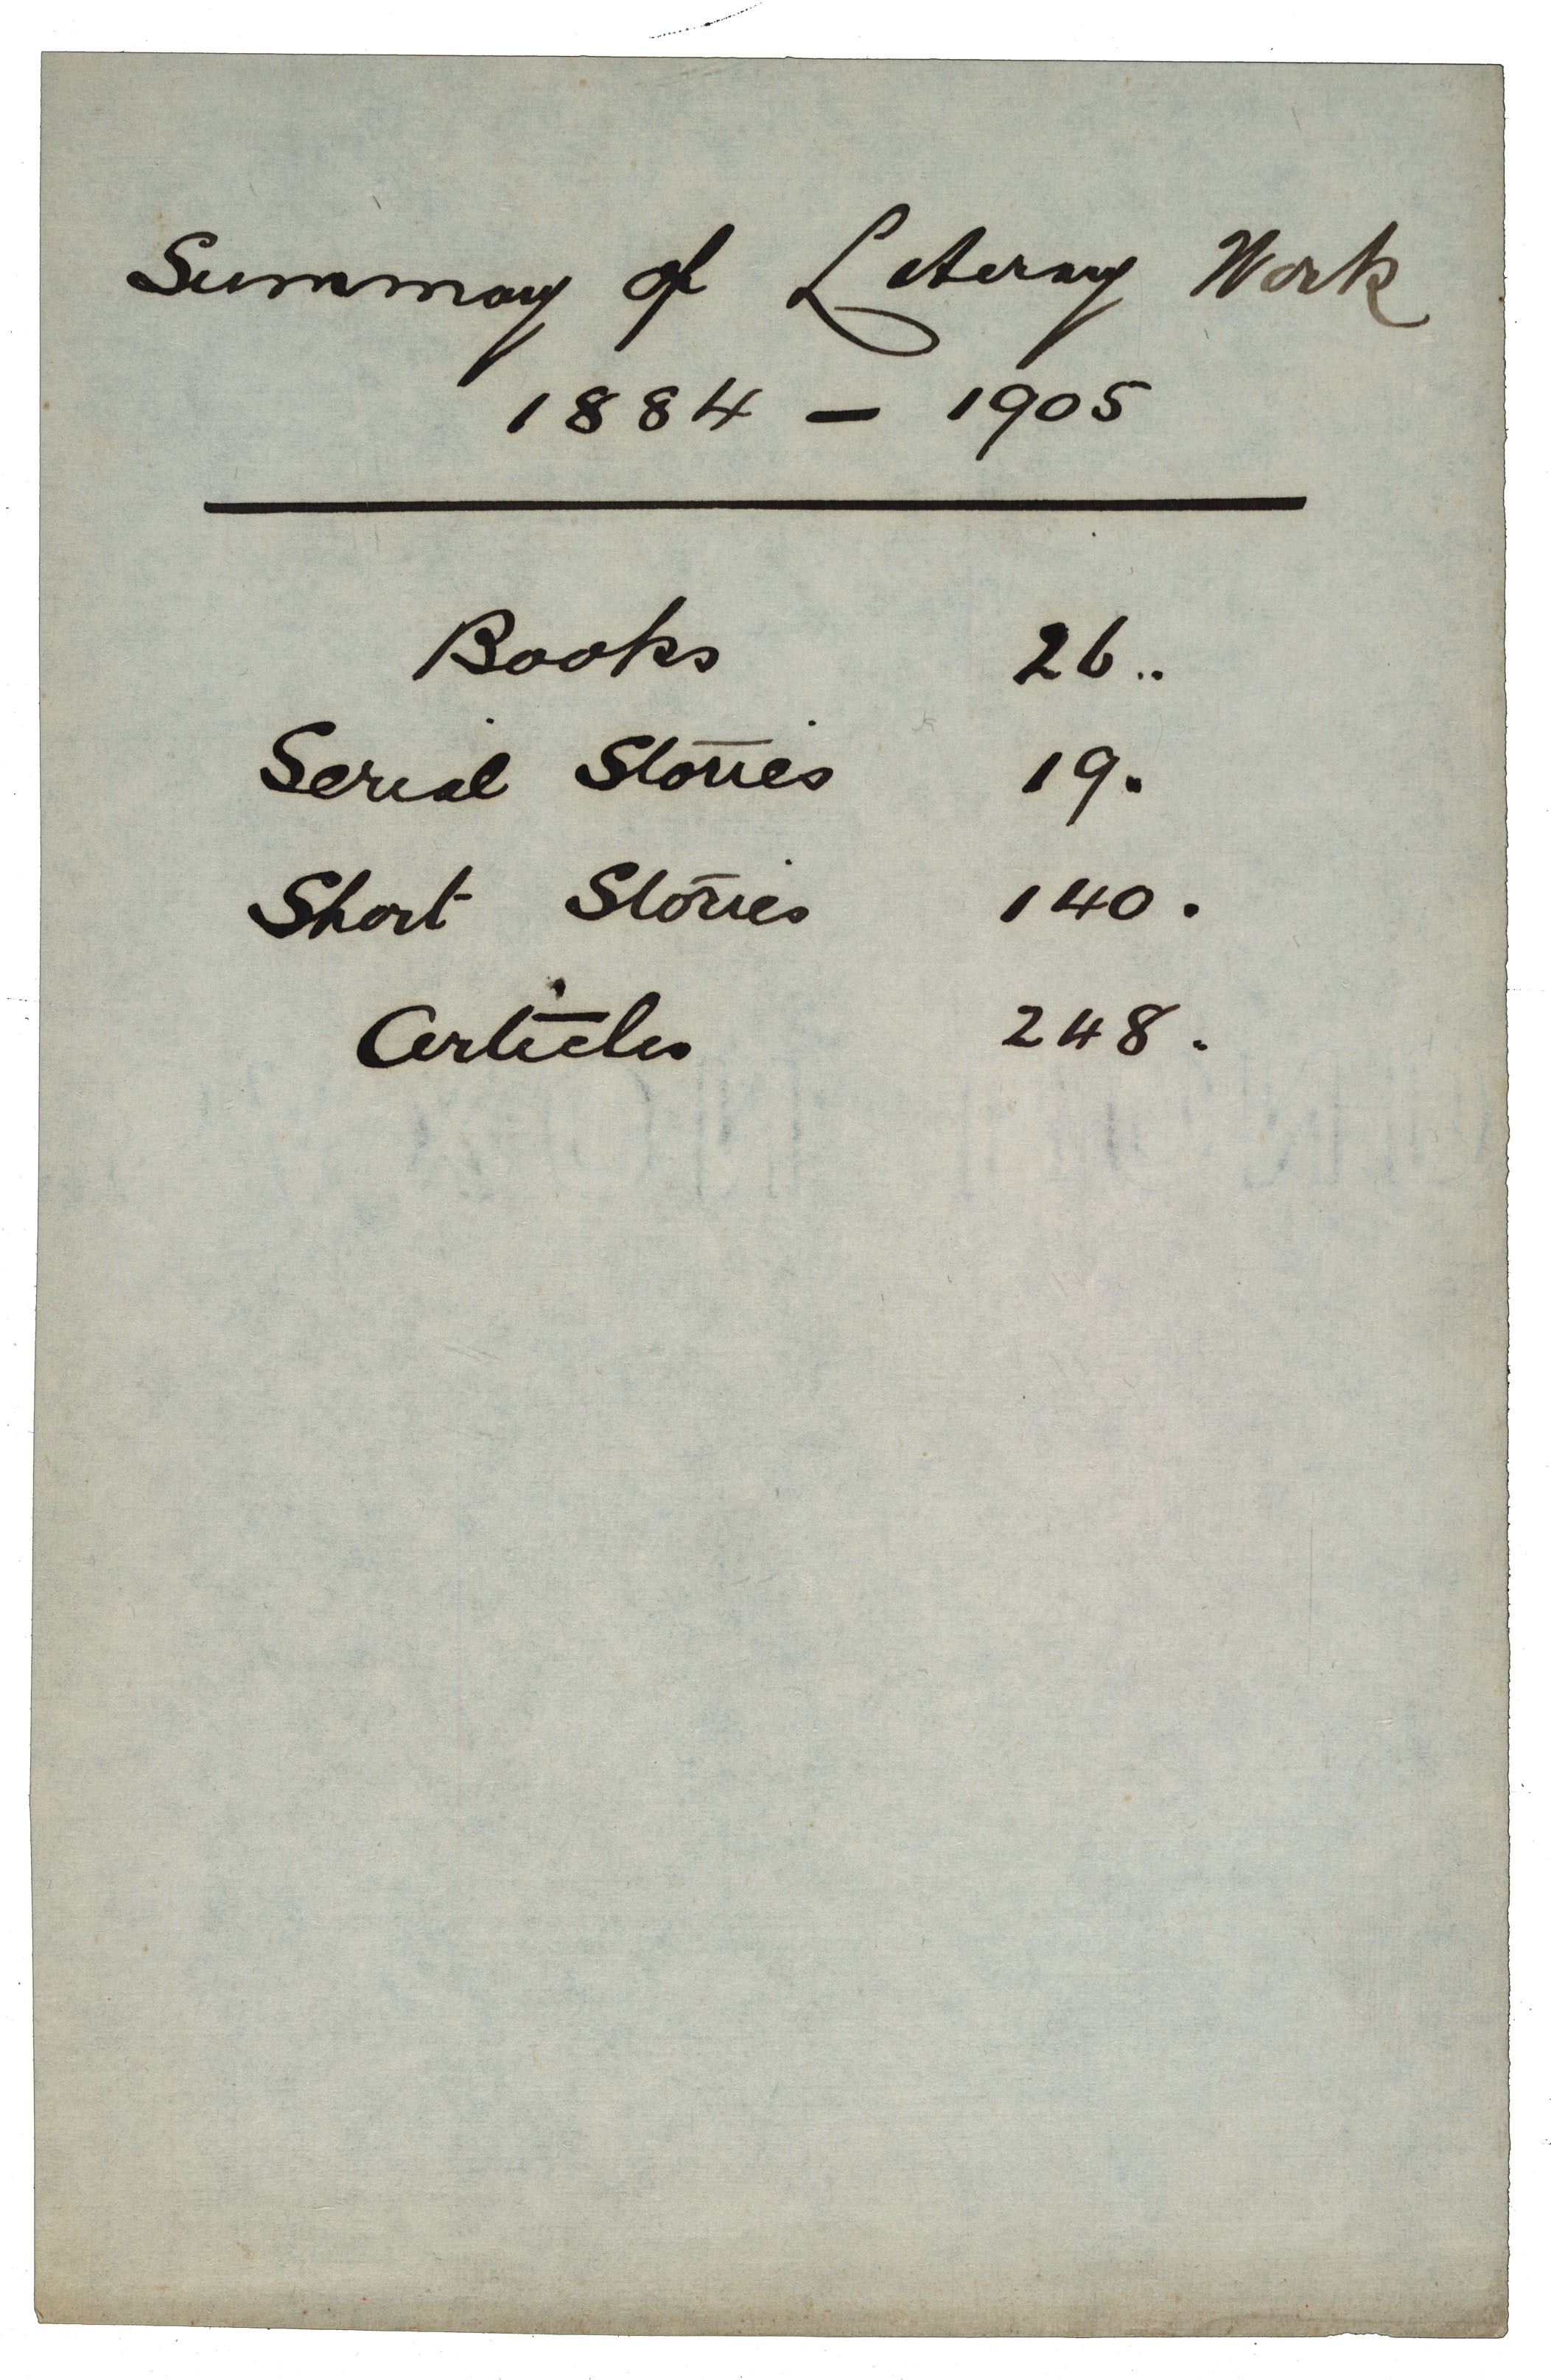 Summary of Literary Work
1884 – 1905
Books 26..
Serial Stories 19.
Short Stories 140.
Articles 248.